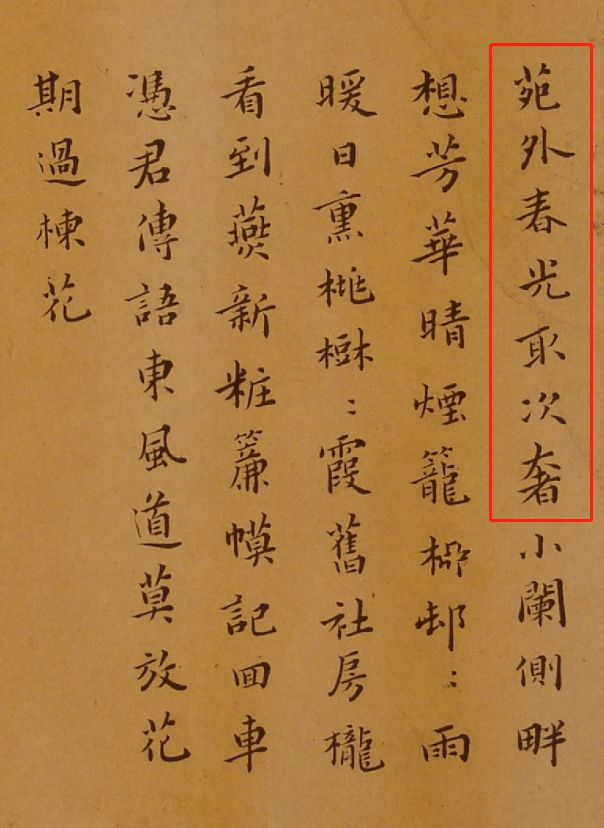 苑外春光取次奢小闌側畔
想芳華晴煙籠柳邨〻雨
暖日熏桃樹〻霞舊社房櫳
看到燕新粧簾幙記囬車
憑君傳語東風道莫放花
期過楝花